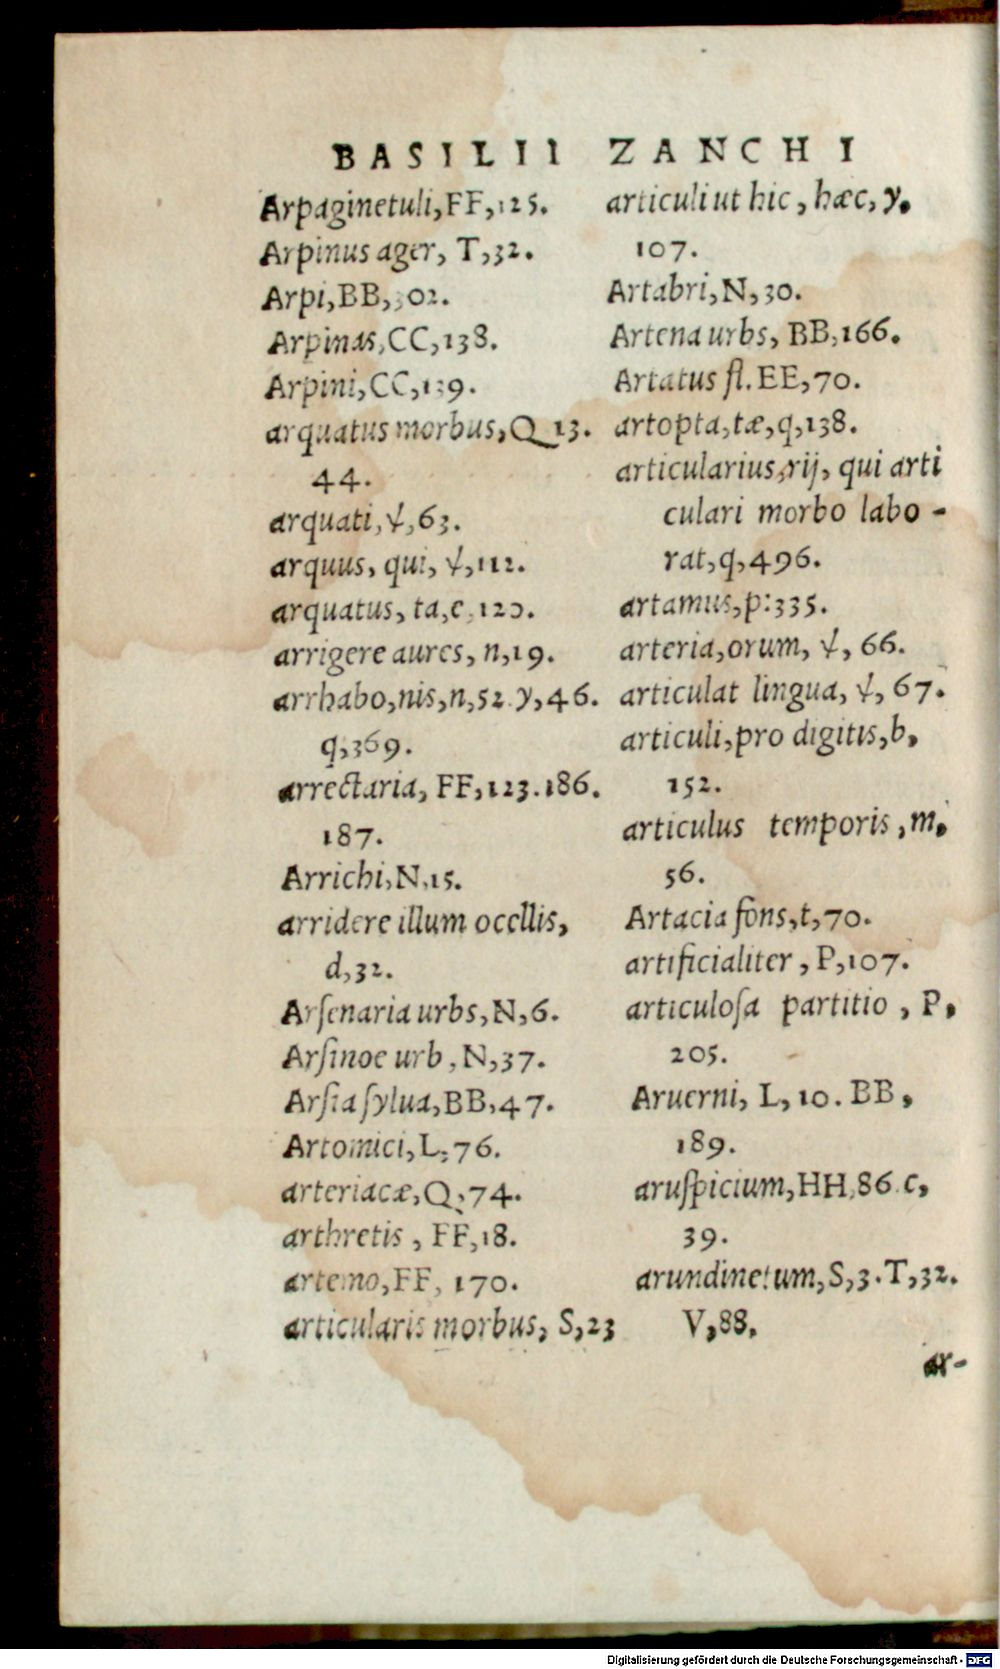 BASILII ZANCHI
Arpaginetuli, FF, 125.
Arpinus ager, T, 32.
Arpi, BB, 302.
Arpinas, CC, 138.
Arpini, CC, 139.
arquatus morbus, Q 13.
44.
arquati, ѱ, 63.
arquus, qui, ѱ, 112.
arquatus, ta, c, 120.
arrigere aures, n, 19.
arrhabo, nis, n, 52. y, 46.
q, 369.
arrectaria, FF, 123. 186.
187.
Arrichi, N, 15.
arridere illum ocellis,
d, 32.
Arſenaria urbs, N, 6.
Arſinoe urb, N, 37.
Arſia ſylua, BB, 47.
Artomici, L, 76.
arteriacæ, Q, 74.
arthretis, FF, 18.
artemo, FF, 170.
articularis morbus, S, 23
articuli ut hic, hæc, y,
107.
Artabri, N, 30.
Artena urbs, BB, 166.
Artatus fl. EE, 70.
artopta, tæ, q, 138.
articularius, rij, qui arti
culari morbo labo-
rat, q, 496.
artamus, p: 335.
arteria, orum, ѱ, 66.
articulat lingua, ѱ, 67.
articuli, pro digitis, b,
152.
articulus temporis, m,
56.
Artacia fons, t, 70.
artificialiter, P, 107.
articuloſa partitio, P,
205.
Aruerni, L, 10. BB,
189.
aruſpicium, HH, 86. c,
39.
arundinetum, S, 3. T, 32.
V, 88.
ar-
Digitalisierung gefördert durch die Deutsche Forschungsgemeinschaft - DFG